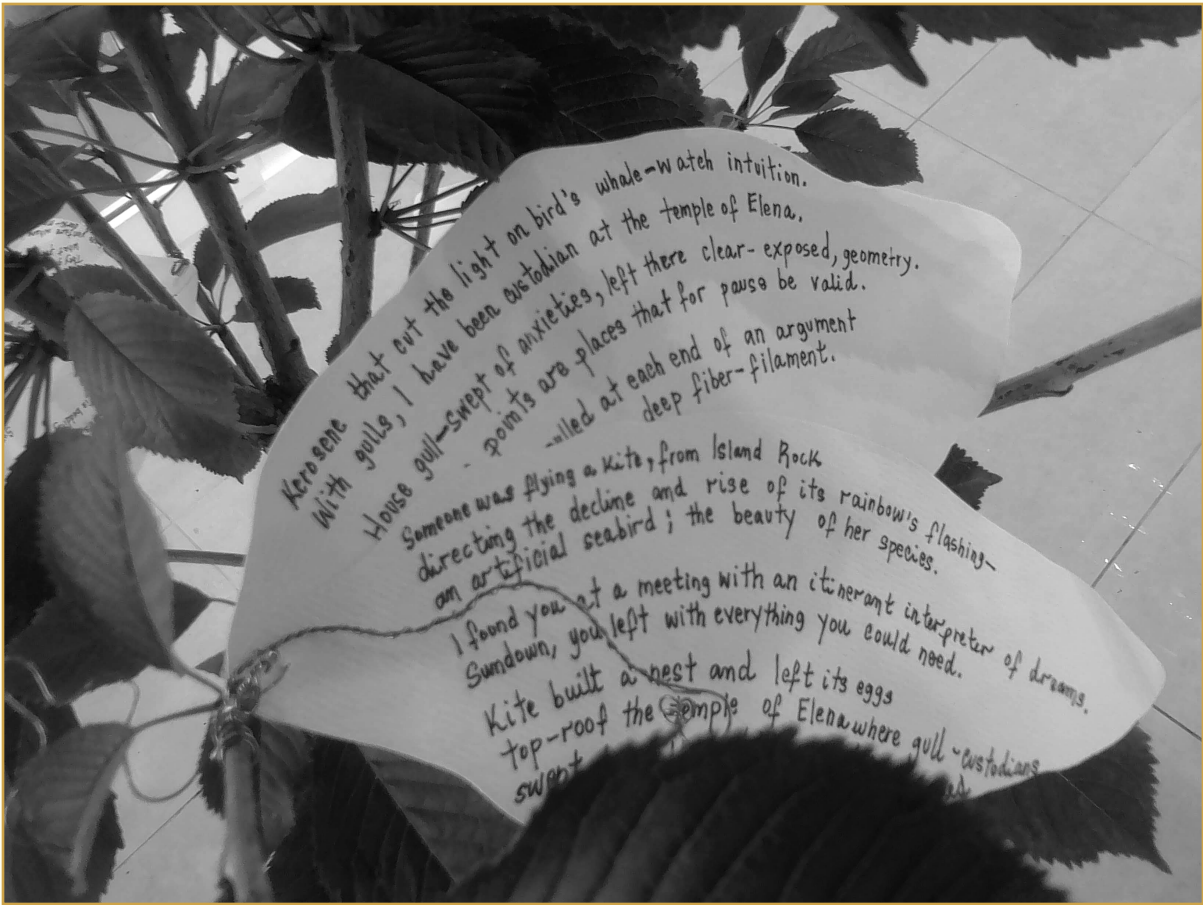 Kerosene that cut the light on bird's whale-watch intuition.
With gulls, I have been custodian at the temple of Elena.
House gull-swept of anxieties, left there clear-exposed, geometry.
points are places that for pause be valid.
at each end of an argument
deep fiber-filament.
Someone was flying a kite, from Island Rock
directing the decline and rise of its rainbow's flashing-
an artificial seabird; the beauty of her species.
I found you at a meeting with an itinerant interpreter of dreams.
Sundown, you left with everything you could need.
Kite built a nest and left its eggs
top-roof the temple of Elena where gull-custodians
swept